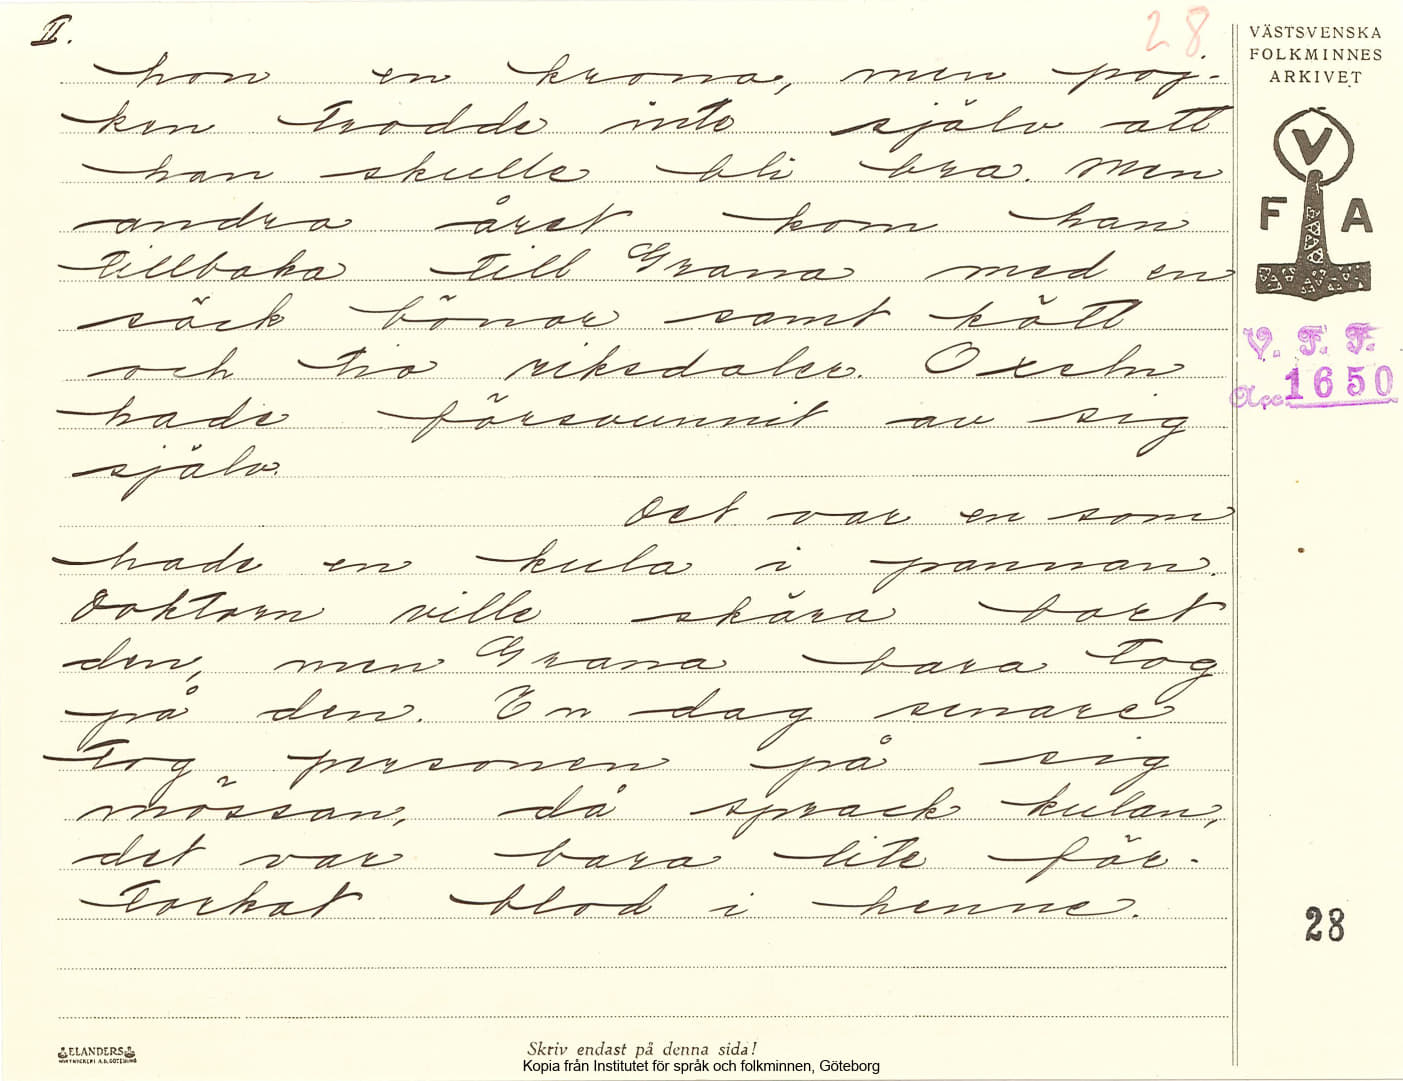 II.
28.
hon en krona, men poj-
ken trodde inte själv att
han skulle bli bra. Men
andra året kom han
tillbaka till Grana med en
säck bönor samt kött
och tio riksdaler. Oxeln
hade försvunnit av sig
själv.
Det var en som
hade en kula i pannan.
Doktorn ville skära bort
den, men Grana bara tog
på den. En dag senare
tog personen på sig
mössan, då sprack kulan,
det var bara lite för-
torkat blod i henne.
VÄSTSVENSKA
FOLKMINNES
ARKIVET
V
F A
V. F. F.
Acc. 1650
28
ELANDERS
Skriv endast på denna sida!
Kopia från Institutet för språk och folkminnen, Göteborg